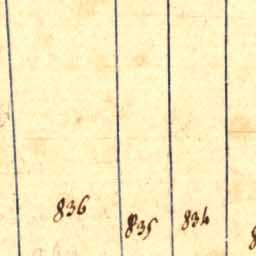 836 835 834